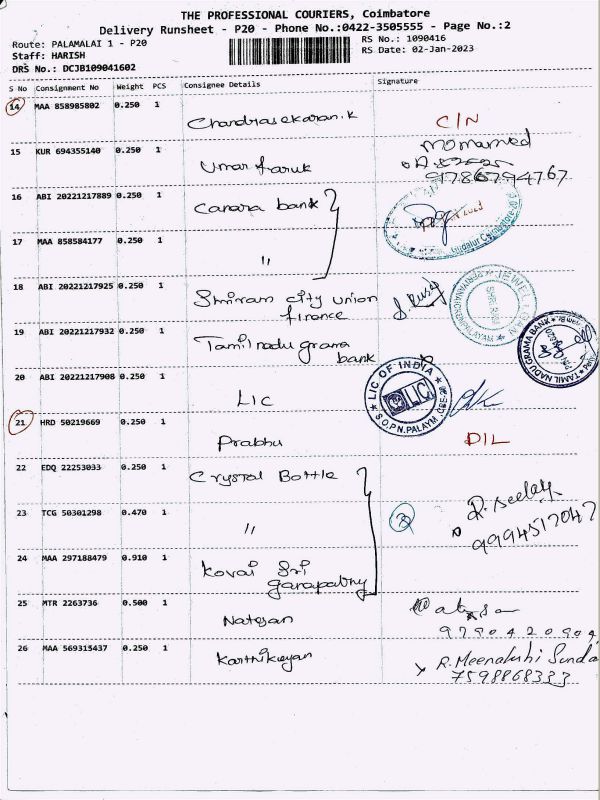 THE PROFESSIONAL COURIERS, Coimbatore
Delivery Runsheet - P20 - Phone No.:0422-3505555 - Page No.:2
Route: PALAMALAI 1 - P20
RS No.: 1090416
Staff: HARISH
RS Date: 02-Jan-2023
DRS No.: DCJB109041602
S No Consignment No Weight PCS Consignee Details Signature
14 MAA 858985802 0.250 1 Chandrasekaran.k C/N
15 KUR 694355140 0.250 1 Umar faruk Mohamed
91786794767
16 ABI 20221217889 0.250 1 Canara bank
Gudalur Coimbatore-20
17 MAA 858584177 0.250 1 "
18 ABI 20221217925 0.250 1 Shriram city union
finance
JEWEL LOAN
SHRI RAM
PERIYANAICKENPALAYAM
19 ABI 20221217932 0.250 1 Tamilnadu grama
bank
TAMIL NADU GRAMA BANK
20 ABI 20221217908 0.250 1 LIC
LIC OF INDIA
LIC
S.O.P.N.PALAYM
21 HRD 50219669 0.250 1 Prabhu DIL
22 EDQ 22253033 0.250 1 Crystal Bottle
23 TCG 50301298 0.470 1 " 3 R. seelay
9994517047
24 MAA 297188479 0.910 1 Kovai Sri
ganapathy
25 MTR 2263736 0.500 1 Natesan
9790420904
26 MAA 569315437 0.250 1 Karthikeyan R. Meenakshi Sunda
7598868333